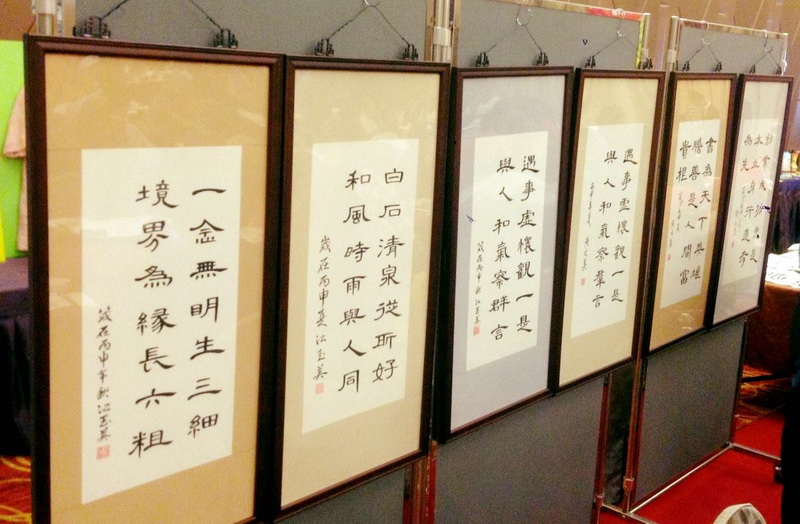 一念無明生三細
境界為緣長六粗
歲在丙申年秋江玉英
白石清泉從所好
和風時雨與人同
歲在丙申夏江玉英
遇事虛懷觀一是
與人和氣察群言
歲在丙申秋江玉英
遇事虛懷觀一是
與人和氣察羣言
書為天下英雄
膽善是人間富
貴根